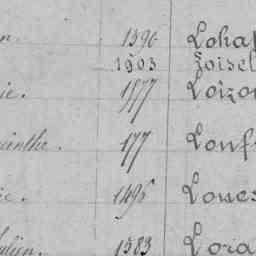 1396 Loha
1903 Loisel
ie. 1577 Loizo
inthe. 177 Louf
ie. 1496 Loues
1583 Lora